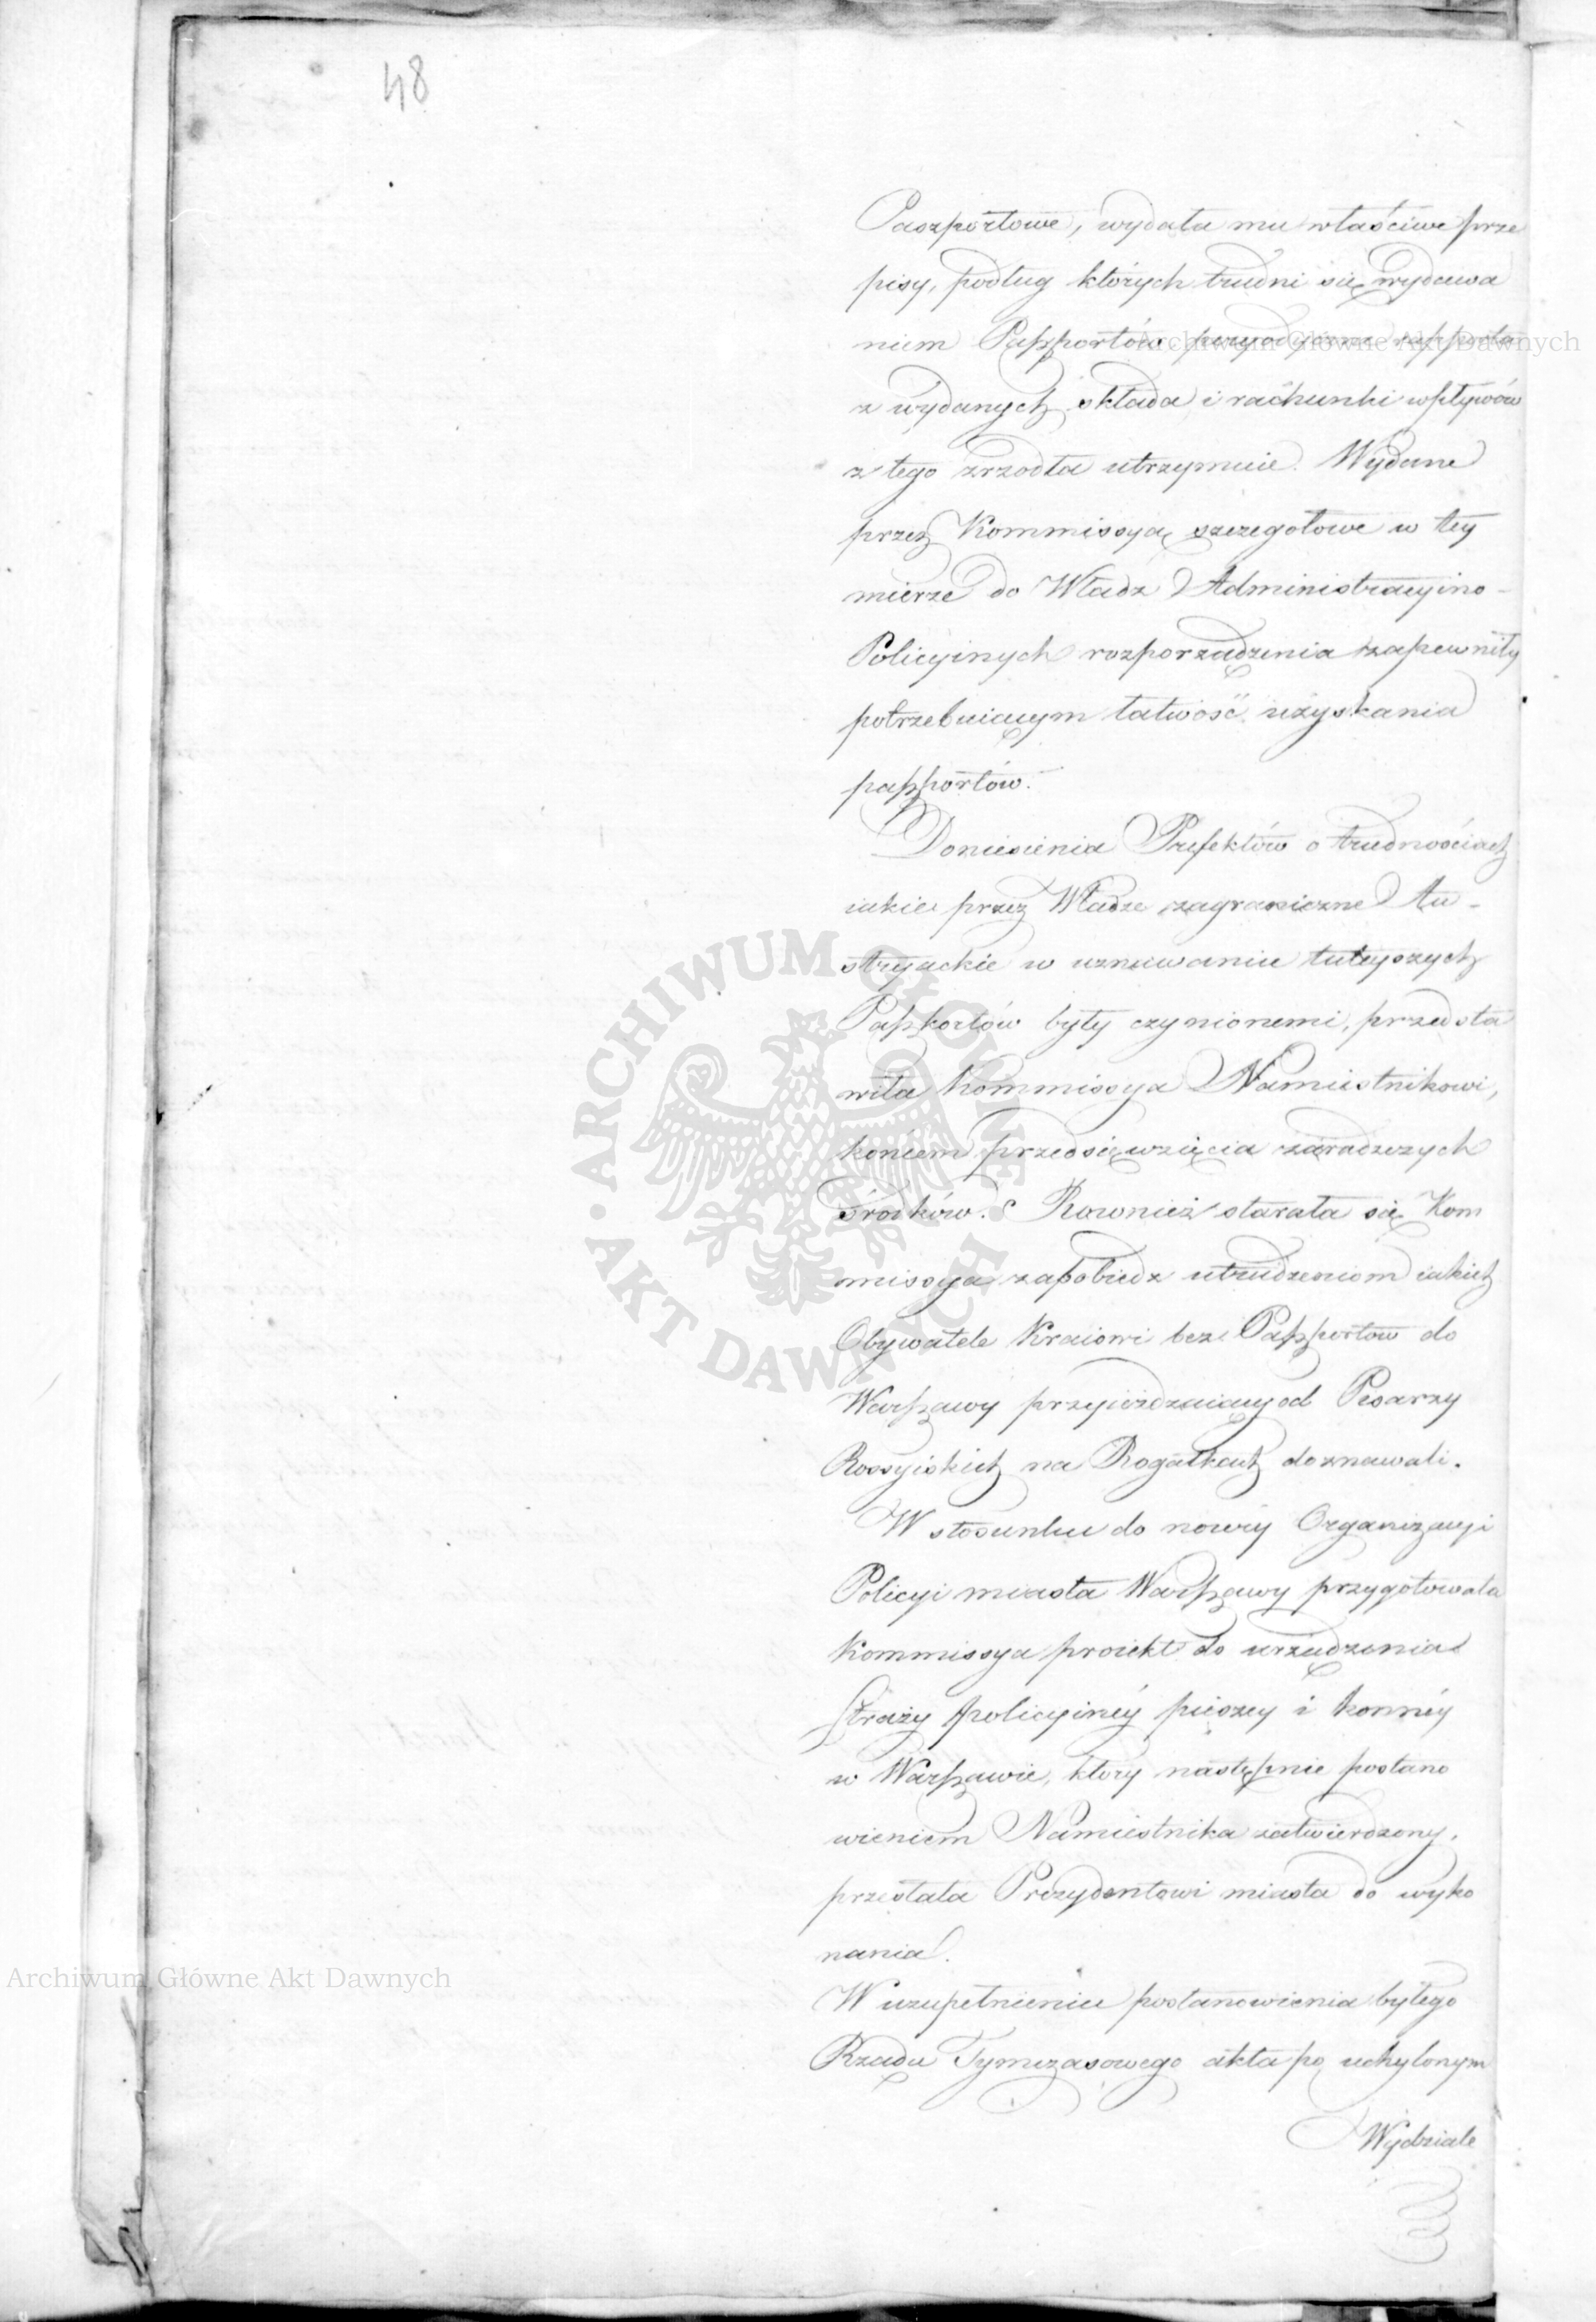 48
Paszportowe, wydała mu właściwe prze
pisy, podług których trudni się wydawa
niem Paszportów, peryodyczne rapporta
z wydanych składa i rachunki wpływów
z tego zrzodła utrzymuie. Wydane
przez Kommissyą szczegołowe w tey
mierze do Władz Administracyino-
Policyinych rozporządzenia zapewniły
potrzebuiącym łatwość uzyskania
paszportów.
Doniesienia Prefektów o trudnościach
iakie przez Władze zagraniczne Au-
stryackie w uznawaniu tuteyszych
Paszportów były czynionemi, przedsta
wiła Kommissya Namiestnikowi,
końcem przedsięwzięcia zaradczych
środków. Rownież starała się Kom
missya zapobiedz utrudzeniom iakich
Obywatele Kraiowi bez Paszportow do
Warszawy przyieżdzaiący od Pisarzy
Rossyiskich na Rogatkach doznawali.
W stosunku do nowey Organizacyi
Policyi miasta Warszawy przygotowała
Kommissya proiekt do urządzenia
Straży policyinéy pieszey i konnéy
w Warszawie, ktory następnie postano
wieniem Namiestnika zatwierdzony,
przesłała Prezydentowi miasta do wyko
nania.
W uzupełnieniu postanowienia byłego
Rządu Tymczasowego akta po uchylonym
Wydziale
Archiwum Główne Akt Dawnych
ARCHIWUM GŁÓWNE · AKT DAWNYCH ·
Archiwum Główne Akt Dawnych